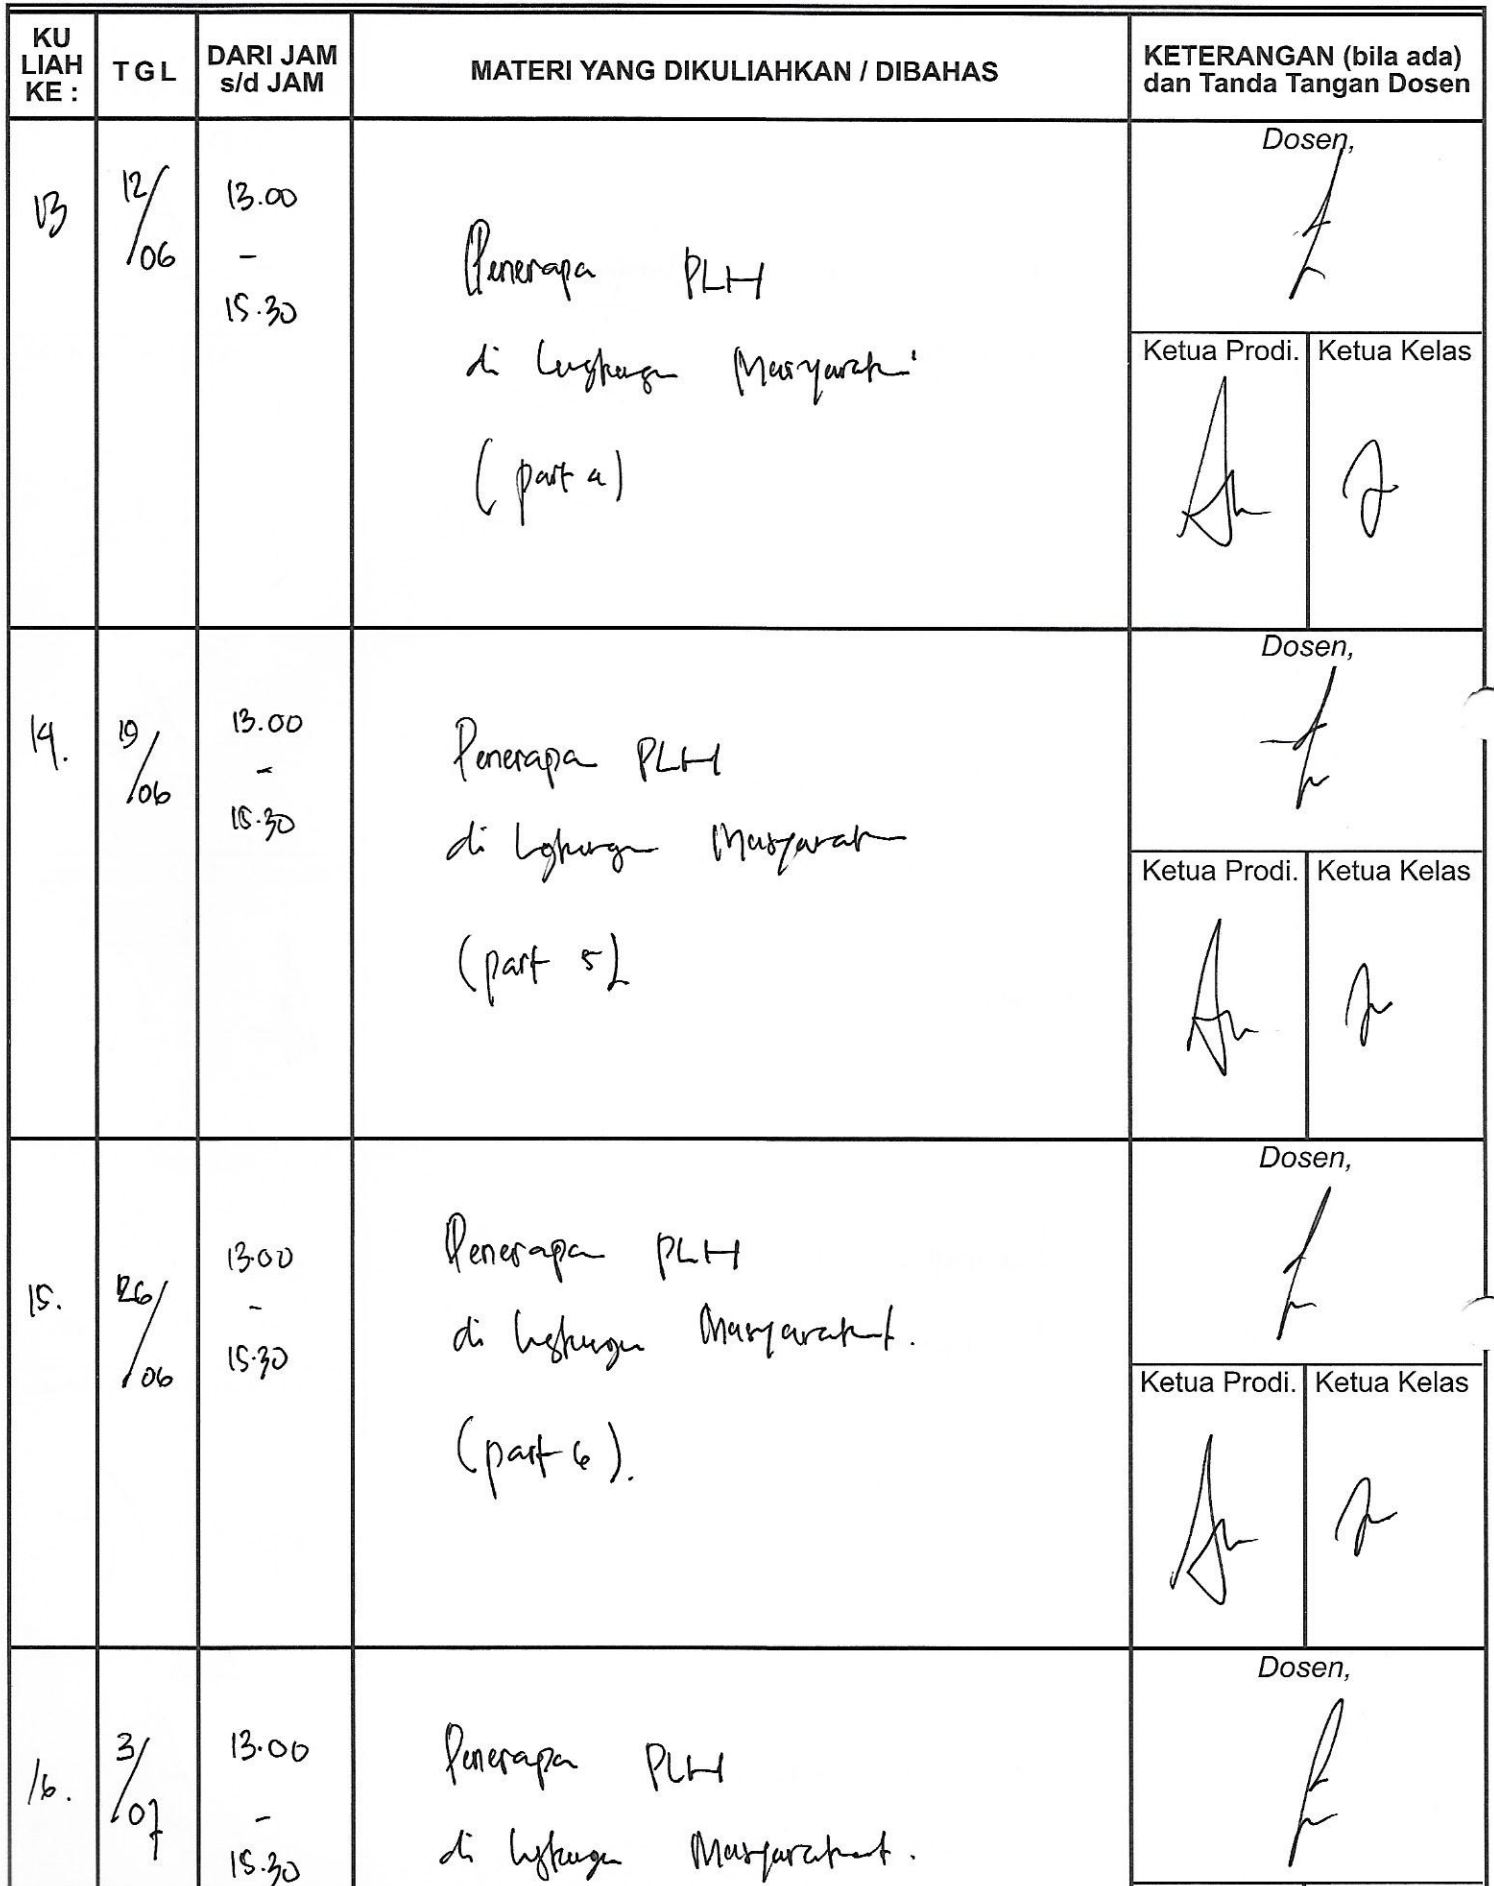 KU LIAH KE :
TGL
DARI JAM s/d JAM
MATERI YANG DIKULIAHKAN / DIBAHAS
KETERANGAN (bila ada) dan Tanda Tangan Dosen
13
12/06
13.00
-
15.30
Penerapa PLH
di
(part 4)
Dosen,
Ketua Prodi.
Ketua Kelas
14.
19/06
13.00
-
15.30
Penerapa PLH
di
(part 5)
Dosen,
Ketua Prodi.
Ketua Kelas
15.
26/06
13.00
-
15.30
Penerapa PLH
di Masyarakat.
(part 6).
Dosen,
Ketua Prodi.
Ketua Kelas
16.
3/07
13.00
-
15.30
Penerapa PLH
di Masyarakat.
Dosen,